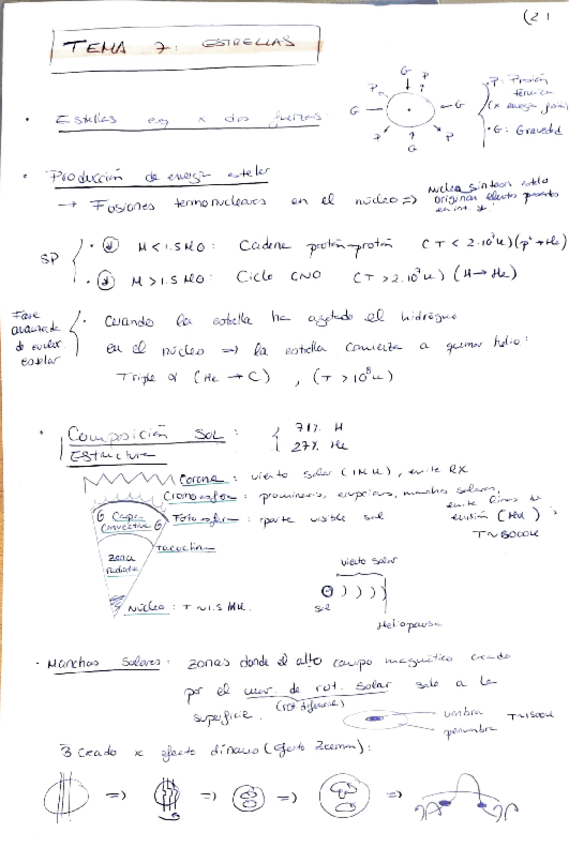 (21
TEMA 7: ESTRELLAS
· Estrellas eq. x dos fuerzas
G P P G G P G P
P: Presión térmica (x energía
· G: Gravedad
· Producción de energía estelar
→ Fusiones termonucleares en el núcleo =>
SP
· M < 1.5 M0: Cadena protón-protón (T < 2.10⁷K) (p⁺→He)
· M > 1.5 M0: Ciclo CNO (T > 2.10⁷K) (H → He)
Fase avanzada de evoluc. estelar
· Cuando la estrella ha agotado el hidrógeno
en el núcleo => la estrella comienza a quemar helio:
Triple α (He → C) , (T > 10⁸K)
· Composición SOL: 71% H
27% He
Estructura
Corona: viento solar (1MK), emite RX
Cromosfera: prominencias, erupciones, manchas solares,
emite líneas de emisión (Hα)
Capa convectiva
Fotosfera: parte visible sol
T~5000K
Tacoclina
zona radiativa
viento solar
Núcleo: T~1.5 MK.
Sol
Heliopausa
· Manchas Solares: zonas donde el alto campo magnético creado
por el mov. de rot. solar sale a la
superficie. (rot. diferenc)
umbra T~1500K
penumbra
B creado x efecto dinamo (efecto Zeemn):
=> => => =>